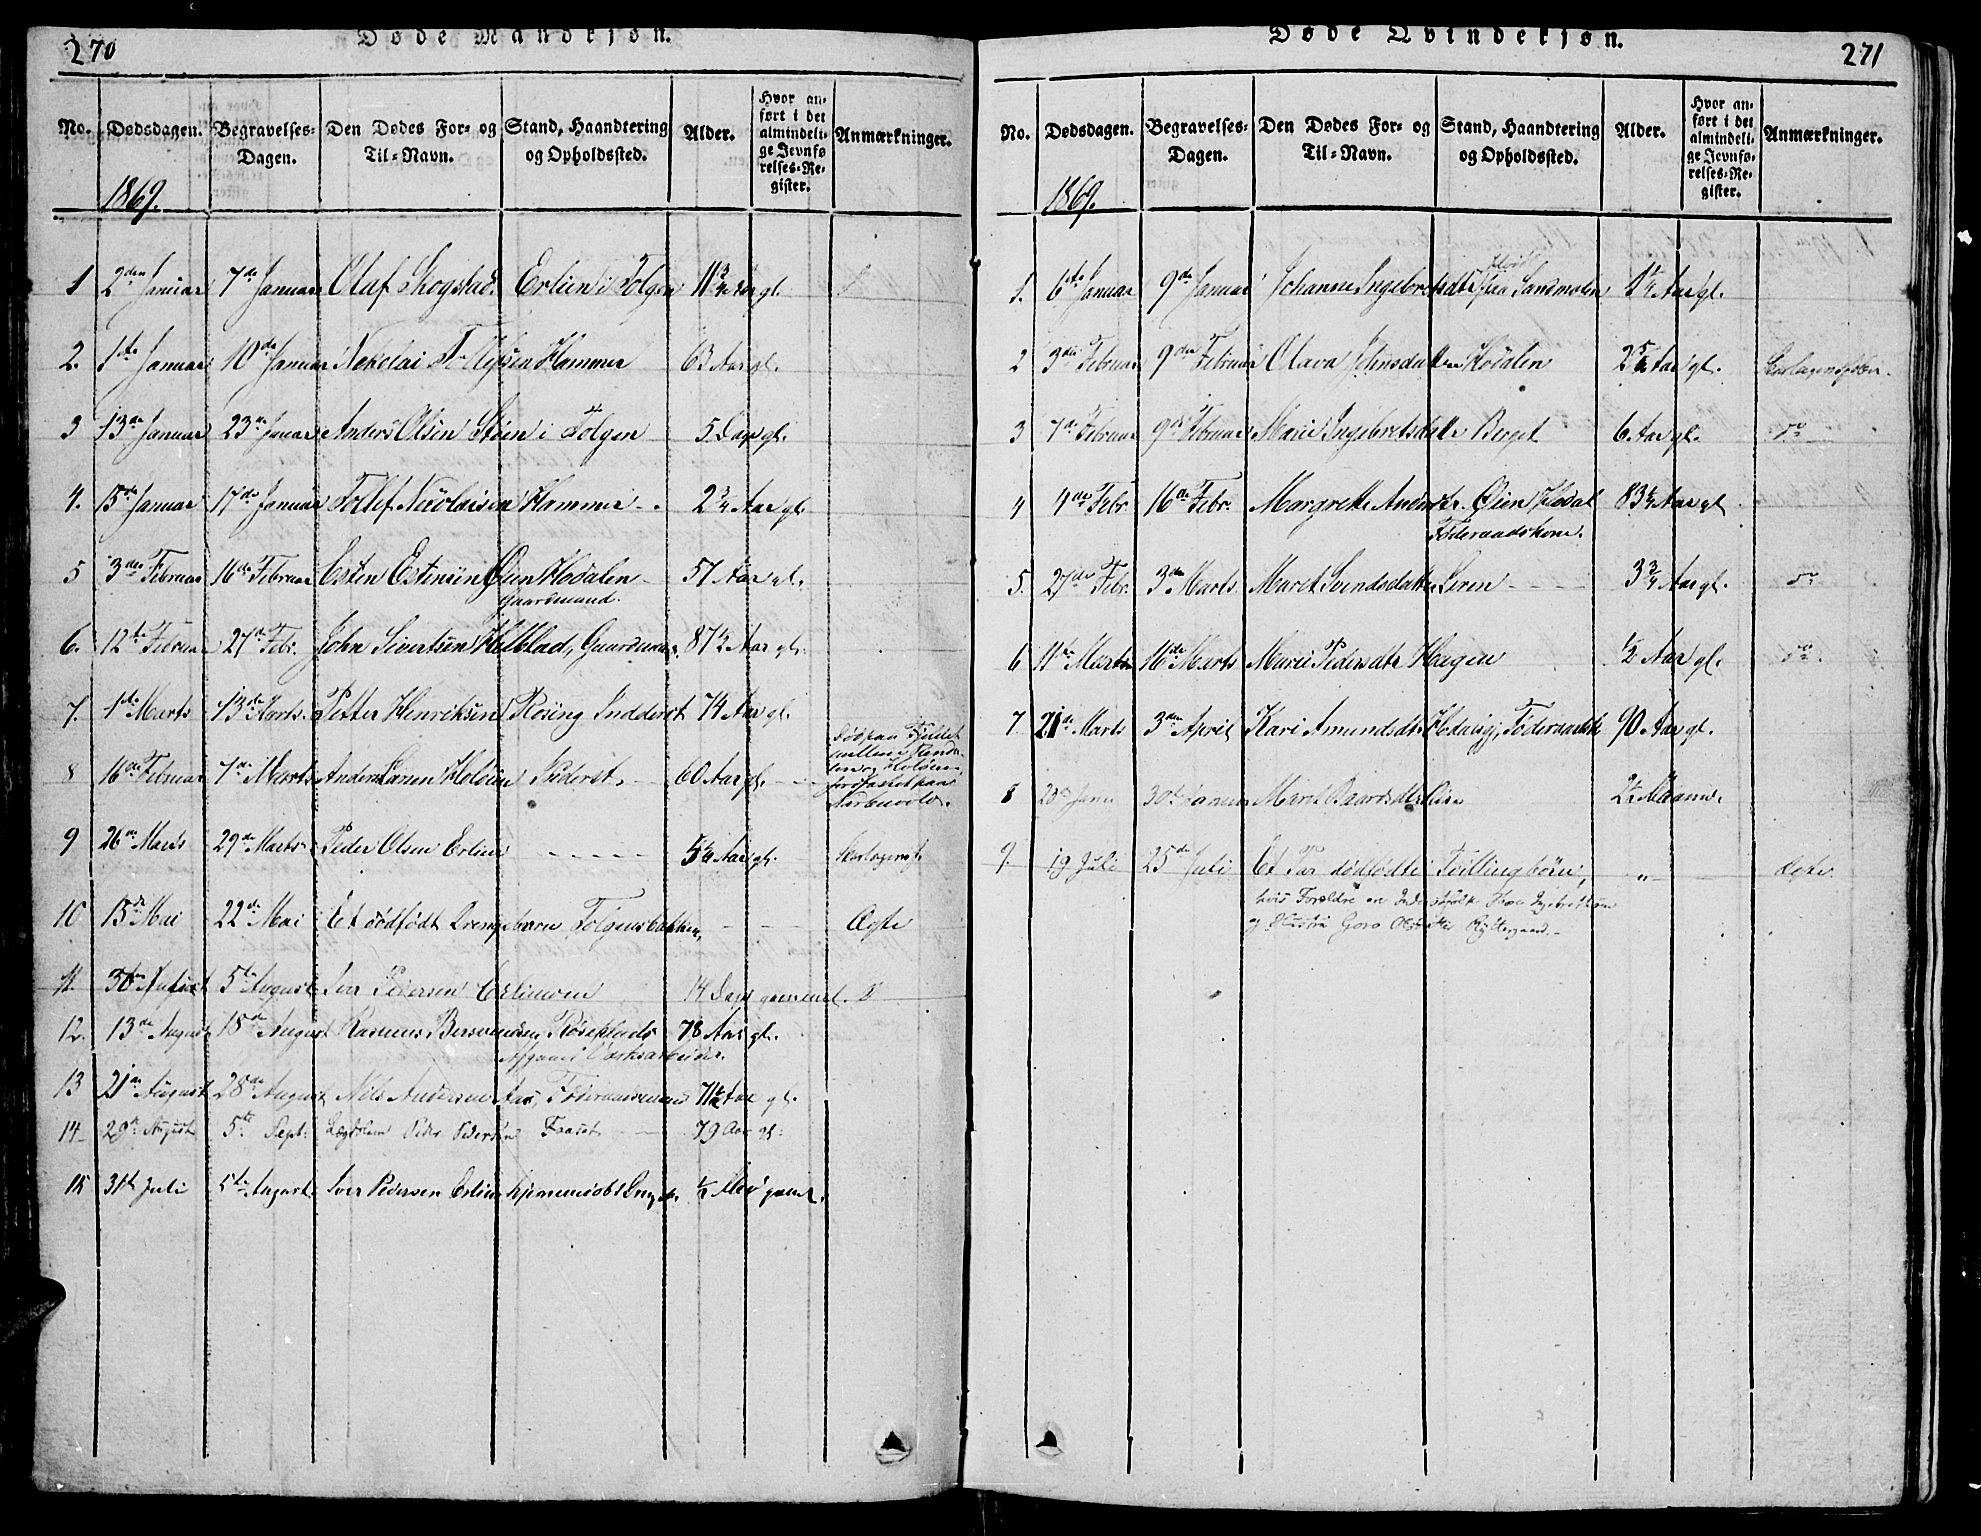 270
Døde Mandkjøn.
No. Dødsdagen. Begravelses-Dagen. Den Dødes For- og Til-Navn. Stand, Haandtering og Opholdssted. Alder. Hvor anført i det almindelige Jevnførelses-Register. Anmærkninger.
1869.
1 2den Januar 7de Januar Olaf Skogstad. Erlien i Tolgen 11 3/4 Aar gl.
2. 1ste Januar 10de Januar Nekolai Hammer 63 Aar gl.
3 13de Januar 23de Januar Anders Olsen Støen i Tolgen 5 Dage gl.
4. 15de Januar 17de Januar Tollef Nicolaisen Hammer 2 3/4 Aar gl.
5 3den Februar 16de Februar Esten Estensen Øien Hodalen 57 Aar gl.
Gaardmand.
6. 12te Februar 27de Febr. John Sivertsen Gaardmand. 87 1/2 Aar gl.
7. 1ste Marts 13de Marts Petter Henriksen Røsing Indderst 74 Aar gl.
8 16de Februar 7de Marts Anders Larsen Holøien Inderst 60 Aar gl.
Død paa Fjeldet
mellem
og Holøien,
9 26de Marts 29de Marts Peder Olsen Erlien 5 1/4 Aar gl. Skarlagensf.
10 15de Mai 22de Mai Et dødfødt Drengebarn Tolgensbakken, Ægte
11. August 5te August Iver Pedersen Erlimoen 14 Dage gammel.
12. 13de August 15de August Rasmus 78 Aar gl.
13 21de August 28de August Nils Andersen Aas, Føderaadsmand 71 1/2 Aar gl.
14 29de August 5te Sept. Lægdslem Peder Pedersen 79 Aar gl.
15 31te Juli 5te August. Iver Pedersen Erlien hjemmedøbt 1/2 gaml.
271
Døde Qvindekjøn.
No. Dødsdagen. Begravelses-Dagen. Den Dødes For- og Til-Navn. Stand, Haandtering og Opholdssted. Alder. Hvor anført i det almindelige Jevnførelses-Register. Anmærkninger.
1869.
1. 6te Januar 9de Januar Johanne Ingebretsdtr Sandmoen 1 1/4 Aar gl.
2 3die Februar 9de Februar Olava Johnsdatter Hodalen Aar gl. Skarlagensfeber.
3 7de Februar 9de Februar Marie Ingebretsdatter Berget 6 Aar gl. do
4 4de Febr. 16de Febr. Margrethe Øien Hodal 83 1/2 Aar gl.
Føderaadskone.
5. 27de Febr. 3die Marts Marit Svendsdatter Leren 3 3/4 Aar gl. do
6 11te Marts 16de Marts Marie Pedersdtr Hagen 1/2 Aar gl. do
7 21de Marts 3die April Kari Amundsdtr. 90 Aar gl.
8 20de Januar 30te Januar Marit Baardsdtr. 2 1/2 Maaned.
9. 19 Juli 25de Juli Et Par dødfødte Tvillingbørn, „ Ægte.
hvis Forældre er
og Hustru Goro Olsdatter